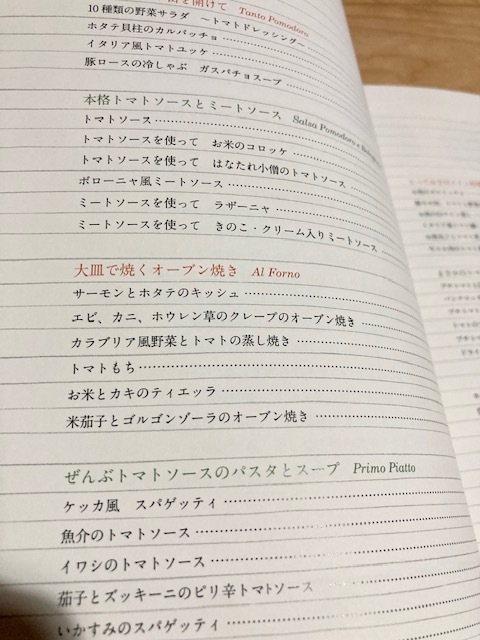 を開けて Tanto Pomodoro
10種類の野菜サラダ ～トマトドレッシング～
ホタテ貝柱のカルパッチョ
イタリア風トマトユッケ
豚ロースの冷しゃぶ ガスパチョスープ
本格トマトソースとミートソース Salsa Pomodoro e
トマトソース
トマトソースを使って お米のコロッケ
トマトソースを使って はなたれ小僧のトマトソース
ボローニャ風ミートソース
ミートソースを使って ラザーニャ
ミートソースを使って きのこ・クリーム入りミートソース
大皿で焼くオーブン焼き Al Forno
サーモンとホタテのキッシュ
エビ、カニ、ホウレン草のクレープのオーブン焼き
カラブリア風野菜とトマトの蒸し焼き
トマトもち
お米とカキのティエッラ
米茄子とゴルゴンゾーラのオーブン焼き
ぜんぶトマトソースのパスタとスープ Primo Piatto
ケッカ風 スパゲッティ
魚介のトマトソース
イワシのトマトソース
茄子とズッキーニのピリ辛トマトソース
いかすみのスパゲッティ